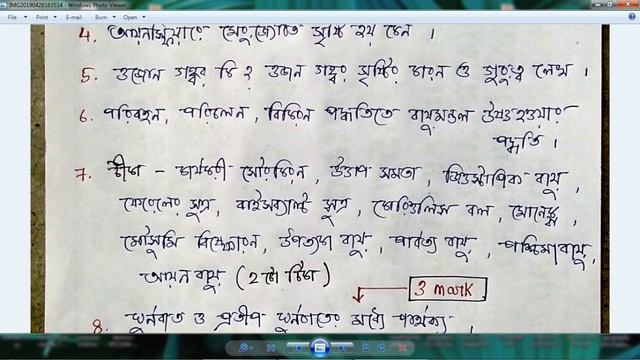 IMG20190428163514 - Windows Photo Viewer
File Print E-mail Burn Open
4. আয়নোস্ফিয়ারে মেরুজ্যোতি সৃষ্টি হয় কেন ।
5. ওজোন গহ্বর কি ? ওজন গহ্বর সৃষ্টির কারন ও গুরুত্ব লেখ ।
6. পরিবহন, পরিচলন, বিকিরন পদ্ধতিতে বায়ুমন্ডল উত্তপ্ত হওয়ার
পদ্ধতি ।
7. টীকা - কার্যকরী সৌরকিরন, উত্তাপ সমতা, জিওস্ট্রপিক বায়ু,
ফেরেলের সূত্র, বাইসব্যালট সূত্র, কোরিওলিস বল, সোনেক্স,
মৌসুমি বিস্ফোরন, উপত্যকা বায়ু, পার্বত্য বায়ু, পশ্চিমা বায়ু,
আয়ন বায়ু (2 টো টীকা)
3 mark
8. ঘূর্নবাত ও প্রতীপ ঘূর্নবাতের মধ্যে পার্থক্য ,